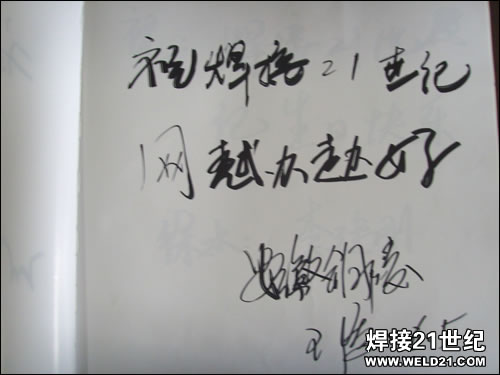 祝焊接21世纪
网越办越好
安徽铜陵
王
焊接21世纪
www.WELD21.com